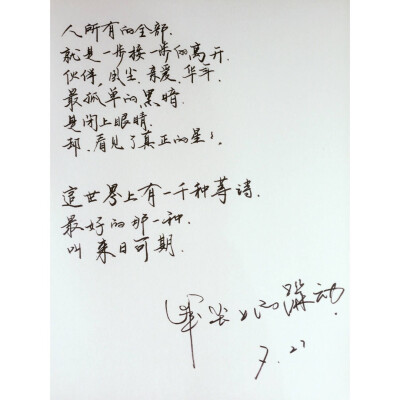 人所有的全部.
就是一步接一步的离开.
伙伴,风尘,亲爱,华年.
最孤单的黑暗.
是闭上眼睛.
却,看见了真正的星
這世界上有一千种等待.
最好的那一种.
叫 来日可期.
躁动.
9.27